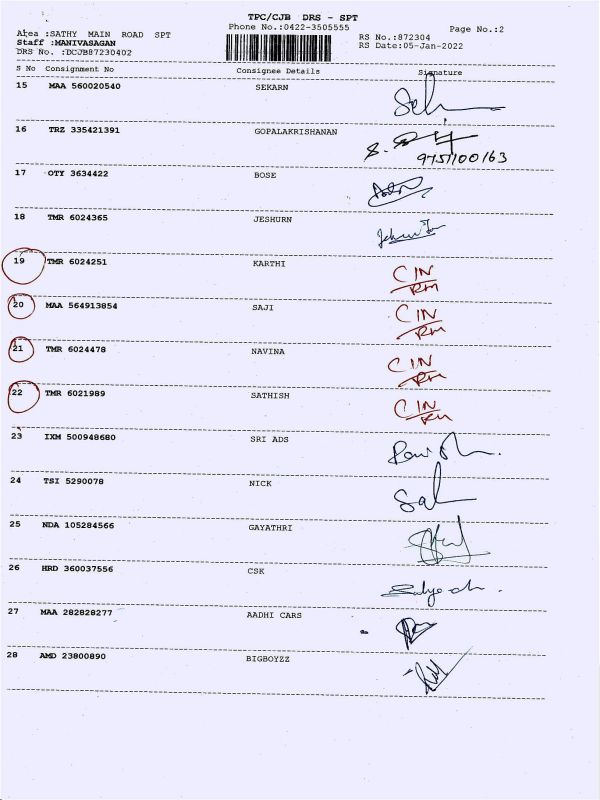 TPC/CJB DRS - SPT
Phone No.:0422-3505555
Page No.:2
Area :SATHY MAIN ROAD SPT
RS No.:872304
Staff :MANIVASAGAN
RS Date:05-Jan-2022
DRS No. :DCJB87230402
S No Consignment No Consignee Details Signature
15 MAA 560020540 SEKARN
16 TRZ 335421391 GOPALAKRISHANAN
17 OTY 3634422 BOSE
18 TMR 6024365 JESHURN
19 TMR 6024251 KARTHI CIN/RM
20 MAA 564913854 SAJI CIN/RM
21 TMR 6024478 NAVINA CIN/RM
22 TMR 6021989 SATHISH CIN/RM
23 IXM 500948680 SRI ADS
24 TSI 5290078 NICK
25 NDA 105284566 GAYATHRI
26 HRD 360037556 CSK
27 MAA 282828277 AADHI CARS
28 AMD 23800890 BIGBOYZZ